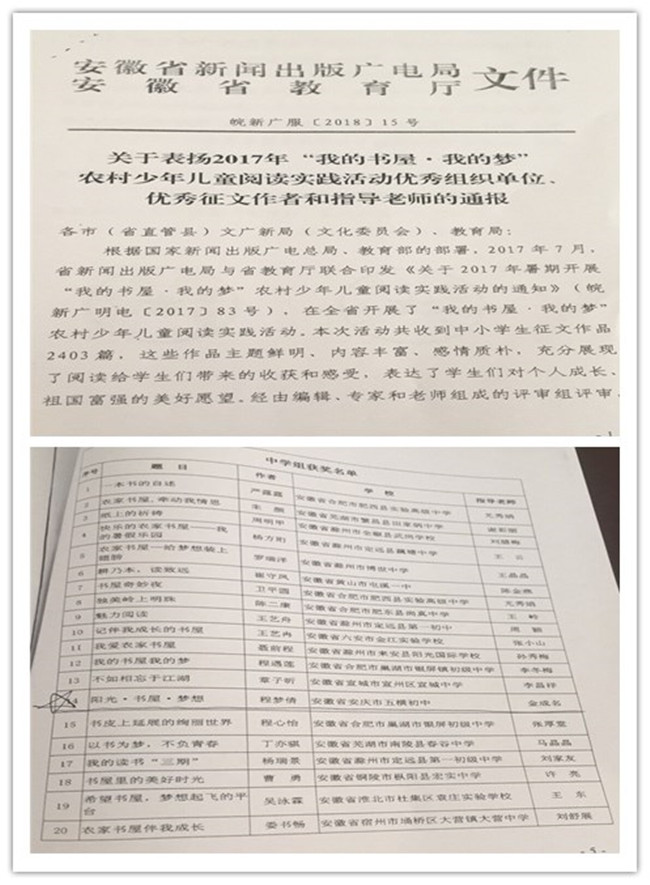 安徽省新闻出版广电局
安徽省教育厅 文件
皖新广服〔2018〕15号
关于表扬2017年“我的书屋·我的梦”
农村少年儿童阅读实践活动优秀组织单位、
优秀征文作者和指导老师的通报
各市（省直管县）文广新局（文化委员会）、教育局：
根据国家新闻出版广电总局、教育部的部署，2017年7月，
省新闻出版广电局与省教育厅联合印发《关于2017年暑期开展
“我的书屋·我的梦”农村少年儿童阅读实践活动的通知》（皖
新广明电〔2017〕83号），在全省开展了“我的书屋·我的梦”
农村少年儿童阅读实践活动。本次活动共收到中小学生征文作品
2403篇，这些作品主题鲜明、内容丰富、感情质朴，充分展现
了阅读给学生们带来的收获和感受，表达了学生们对个人成长、
祖国富强的美好愿望。经由编辑、专家和老师组成的评审组评审，
- 1
中学组获奖名单
序号 题目 作者 学校 指导老师
1 一本书的自述 严磊磊 安徽省合肥市肥西县实验高级中学
2 农家书屋，牵动我情思 朱 安徽省芜湖市繁昌县田家炳中学
3 纸上的祈祷 周明甲 安徽省滁州市全椒县武岗学校
4 快乐的农家书屋——我
的暑假乐园 杨方珩 安徽省滁州市定远县藕塘中学
5 农家书屋—给梦想装上
翅膀 罗瑞洋 安徽省亳州市博世中学 王
6 耕乃本，读致远 崔守凤 安徽省黄山市屯溪一中 王晶晶
7 书屋奇妙夜 卫平圆 安徽省合肥市肥西县实验高级中学
8 独美岭上明珠 陈二康 安徽省合肥市肥东县尚真中学
9 魅力阅读 王艺舟 安徽省滁州市定远县第一初中 王
10 记伴我成长的书屋 王艺冉 安徽省六安市金江实验学校 周
11 我爱农家书屋 聂前程 安徽省滁州市来安县阳光国际学校 张小山
12 我的书屋我的梦 程遇莲 安徽省合肥市巢湖市银屏镇初级中学 孙秀梅
13 不如相忘于江湖 章子昕 安徽省宣城市宣州区宣城中学 李冬梅
14 阳光·书屋·梦想 程梦倩 安徽省安庆市五横初中 金成名
15 书皮上延展的绚丽世界 程心怡 安徽省合肥市巢湖市银屏初级中学 张厚堂
16 以书为梦，不负青春 丁亦骐 安徽省芜湖市南陵县春谷中学 马晶晶
17 我的读书“三期” 杨瑞景 安徽省滁州市定远县第一初级中学 刘家友
18 书屋里的美好时光 曹勇 安徽省铜陵市枞阳县宏实中学 许亮
19 希望书屋，梦想起飞的平
台 吴泳霖 安徽省淮北市杜集区袁庄实验学校 王东
20 农家书屋伴我成长 娄书畅 安徽省宿州市埇桥区大营镇大营中学 刘舒展
- 5 -